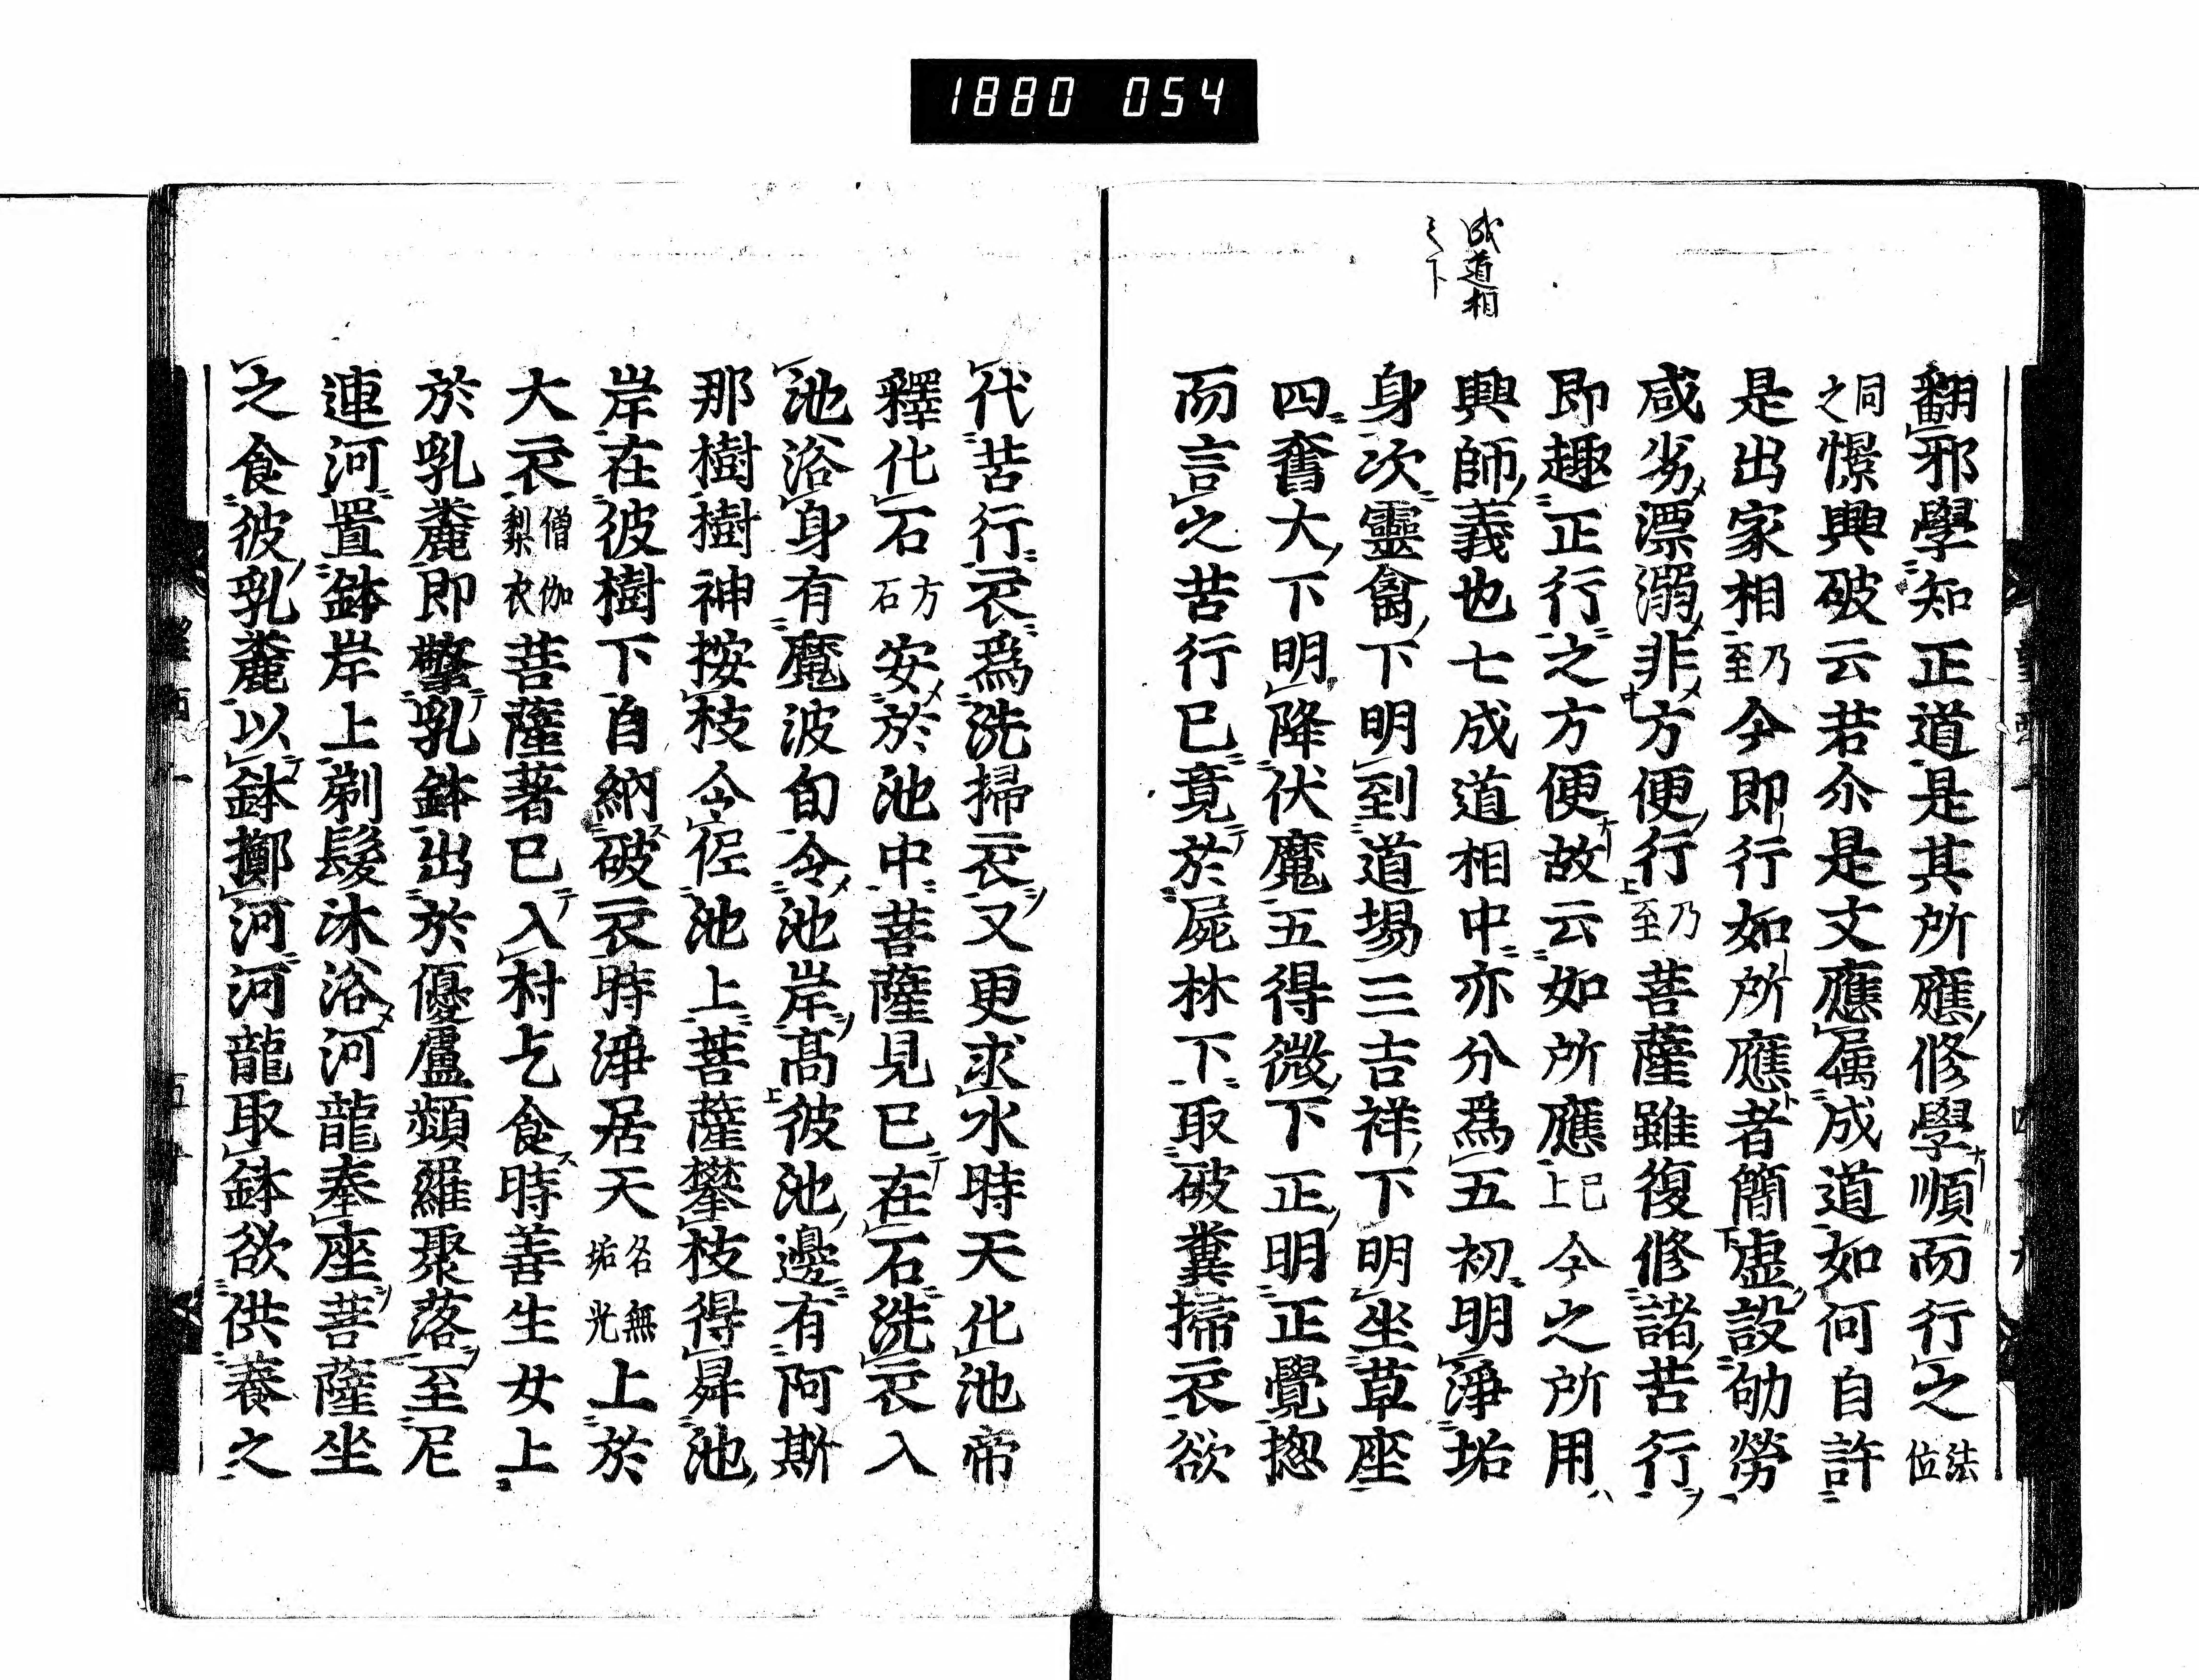 1880 054
成道相
之下
翻邪學知正道是其所應修學順而行之法位
同之憬興破云若尒是文應属成道如何自許
是出家相乃至今即行如所應者簡虚設劬勞
咸劣漂溺非方便行乃至菩薩雖復修諸苦行
即趣正行之方便故云如所應已上今之所用
興師義也七成道相中亦分爲五初明淨垢
身次靈禽下明到道場三吉祥下明坐草座
四奮大下明降伏魔五得微下正明正覺揔
而言之苦行已竟於屍林下取破糞掃衣欲
代苦行衣爲洗掃衣又更求水時天化池帝
釋化石方石安於池中菩薩見已在石洗衣入
池浴身有魔波旬令池岸高彼池邊有阿斯
那樹樹神按枝令低池上菩薩攀枝得昇池
岸在彼樹下自納破衣時淨居天名無垢光上於
大衣僧伽梨衣菩薩著已入村乞食時善生女上
於乳麋即擎乳鉢出於優盧頻羅聚落至尼
連河置鉢岸上剃髮沐浴河龍奉座菩薩坐
之食彼乳麋以鉢擲河河龍取鉢欲供養之